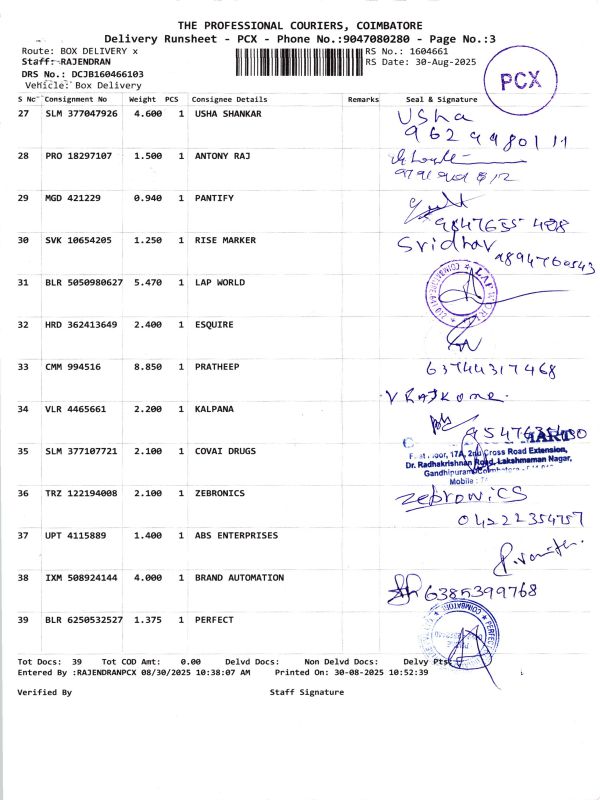 THE PROFESSIONAL COURIERS, COIMBATORE
Delivery Runsheet - PCX - Phone No.:9047080280 - Page No.:3
Route: BOX DELIVERY x
RS No.: 1604661
Staff: RAJENDRAN
RS Date: 30-Aug-2025
DRS No.: DCJB160466103
Vehicle: Box Delivery
PCX
S No Consignment No Weight PCS Consignee Details Remarks Seal & Signature
27 SLM 377047926 4.600 1 USHA SHANKAR Usha
9629980111
28 PRO 18297107 1.500 1 ANTONY RAJ
29 MGD 421229 0.940 1 PANTIFY
30 SVK 10654205 1.250 1 RISE MARKER Sridhar
9894760543
31 BLR 5050980627 5.470 1 LAP WORLD
32 HRD 362413649 2.400 1 ESQUIRE
33 CMM 994516 8.850 1 PRATHEEP 63744317468
34 VLR 4465661 2.200 1 KALPANA
35 SLM 377107721 2.100 1 COVAI DRUGS
17A, 2nd Cross Road Extension,
Dr. Radhakrishnan Road, Lakshmanan Nagar,
Gandhipuram
Mobile :
36 TRZ 122194008 2.100 1 ZEBRONICS Zebronics
04222354757
37 UPT 4115889 1.400 1 ABS ENTERPRISES
38 IXM 508924144 4.000 1 BRAND AUTOMATION 6385399768
39 BLR 6250532527 1.375 1 PERFECT
Tot Docs: 39 Tot COD Amt: 0.00 Delvd Docs: Non Delvd Docs: Delvy Pts:
Entered By :RAJENDRANPCX 08/30/2025 10:38:07 AM Printed On: 30-08-2025 10:52:39
Verified By Staff Signature